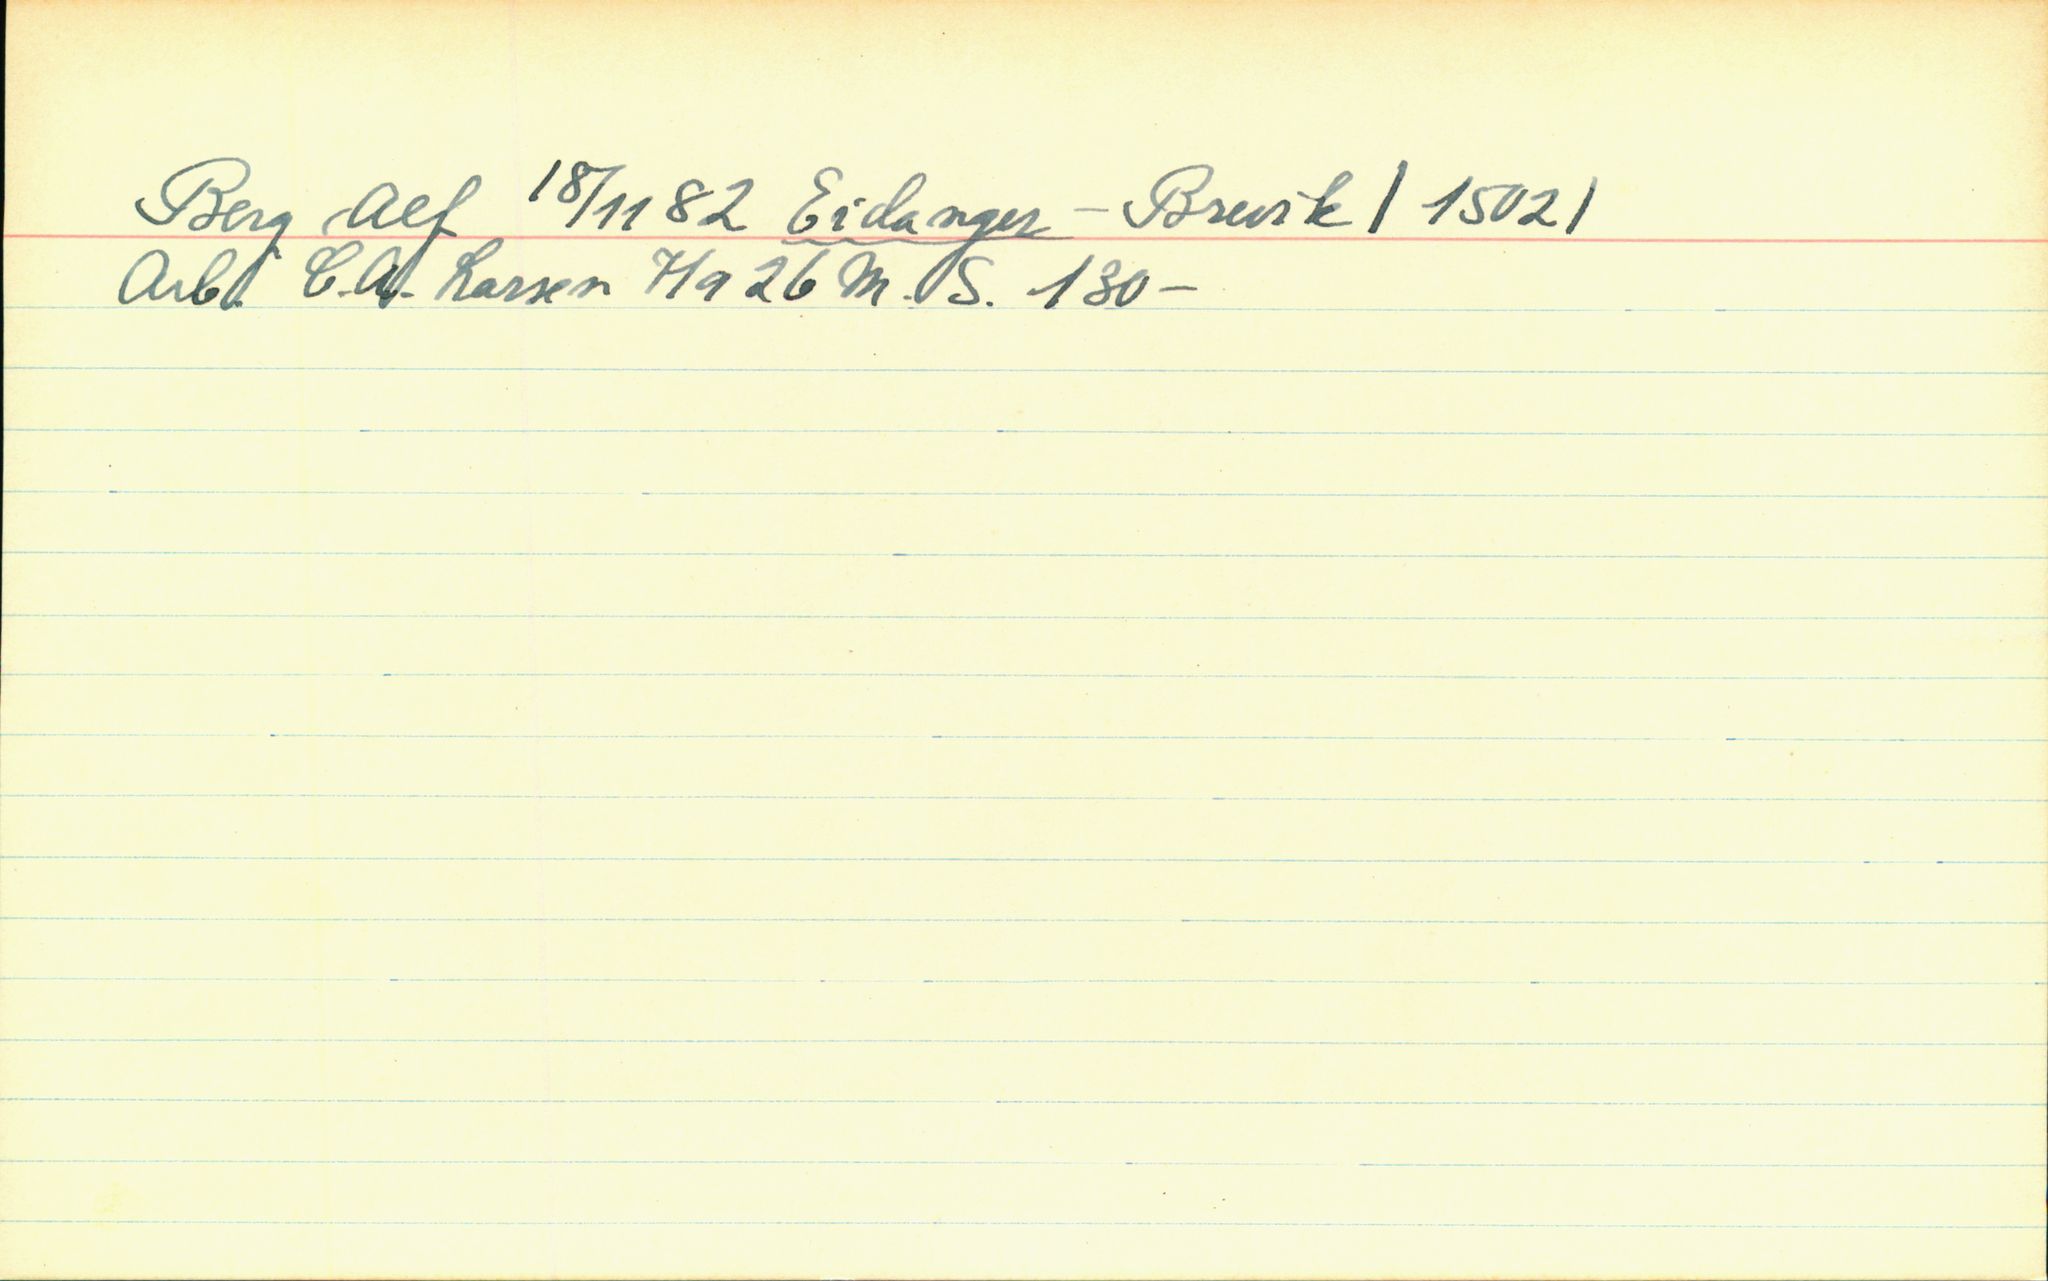 Berg Alf 18/11 82 Eidanger - Brevik | 15021
Arb. C.A. Larsen 7/9 26 M. S. 130 -